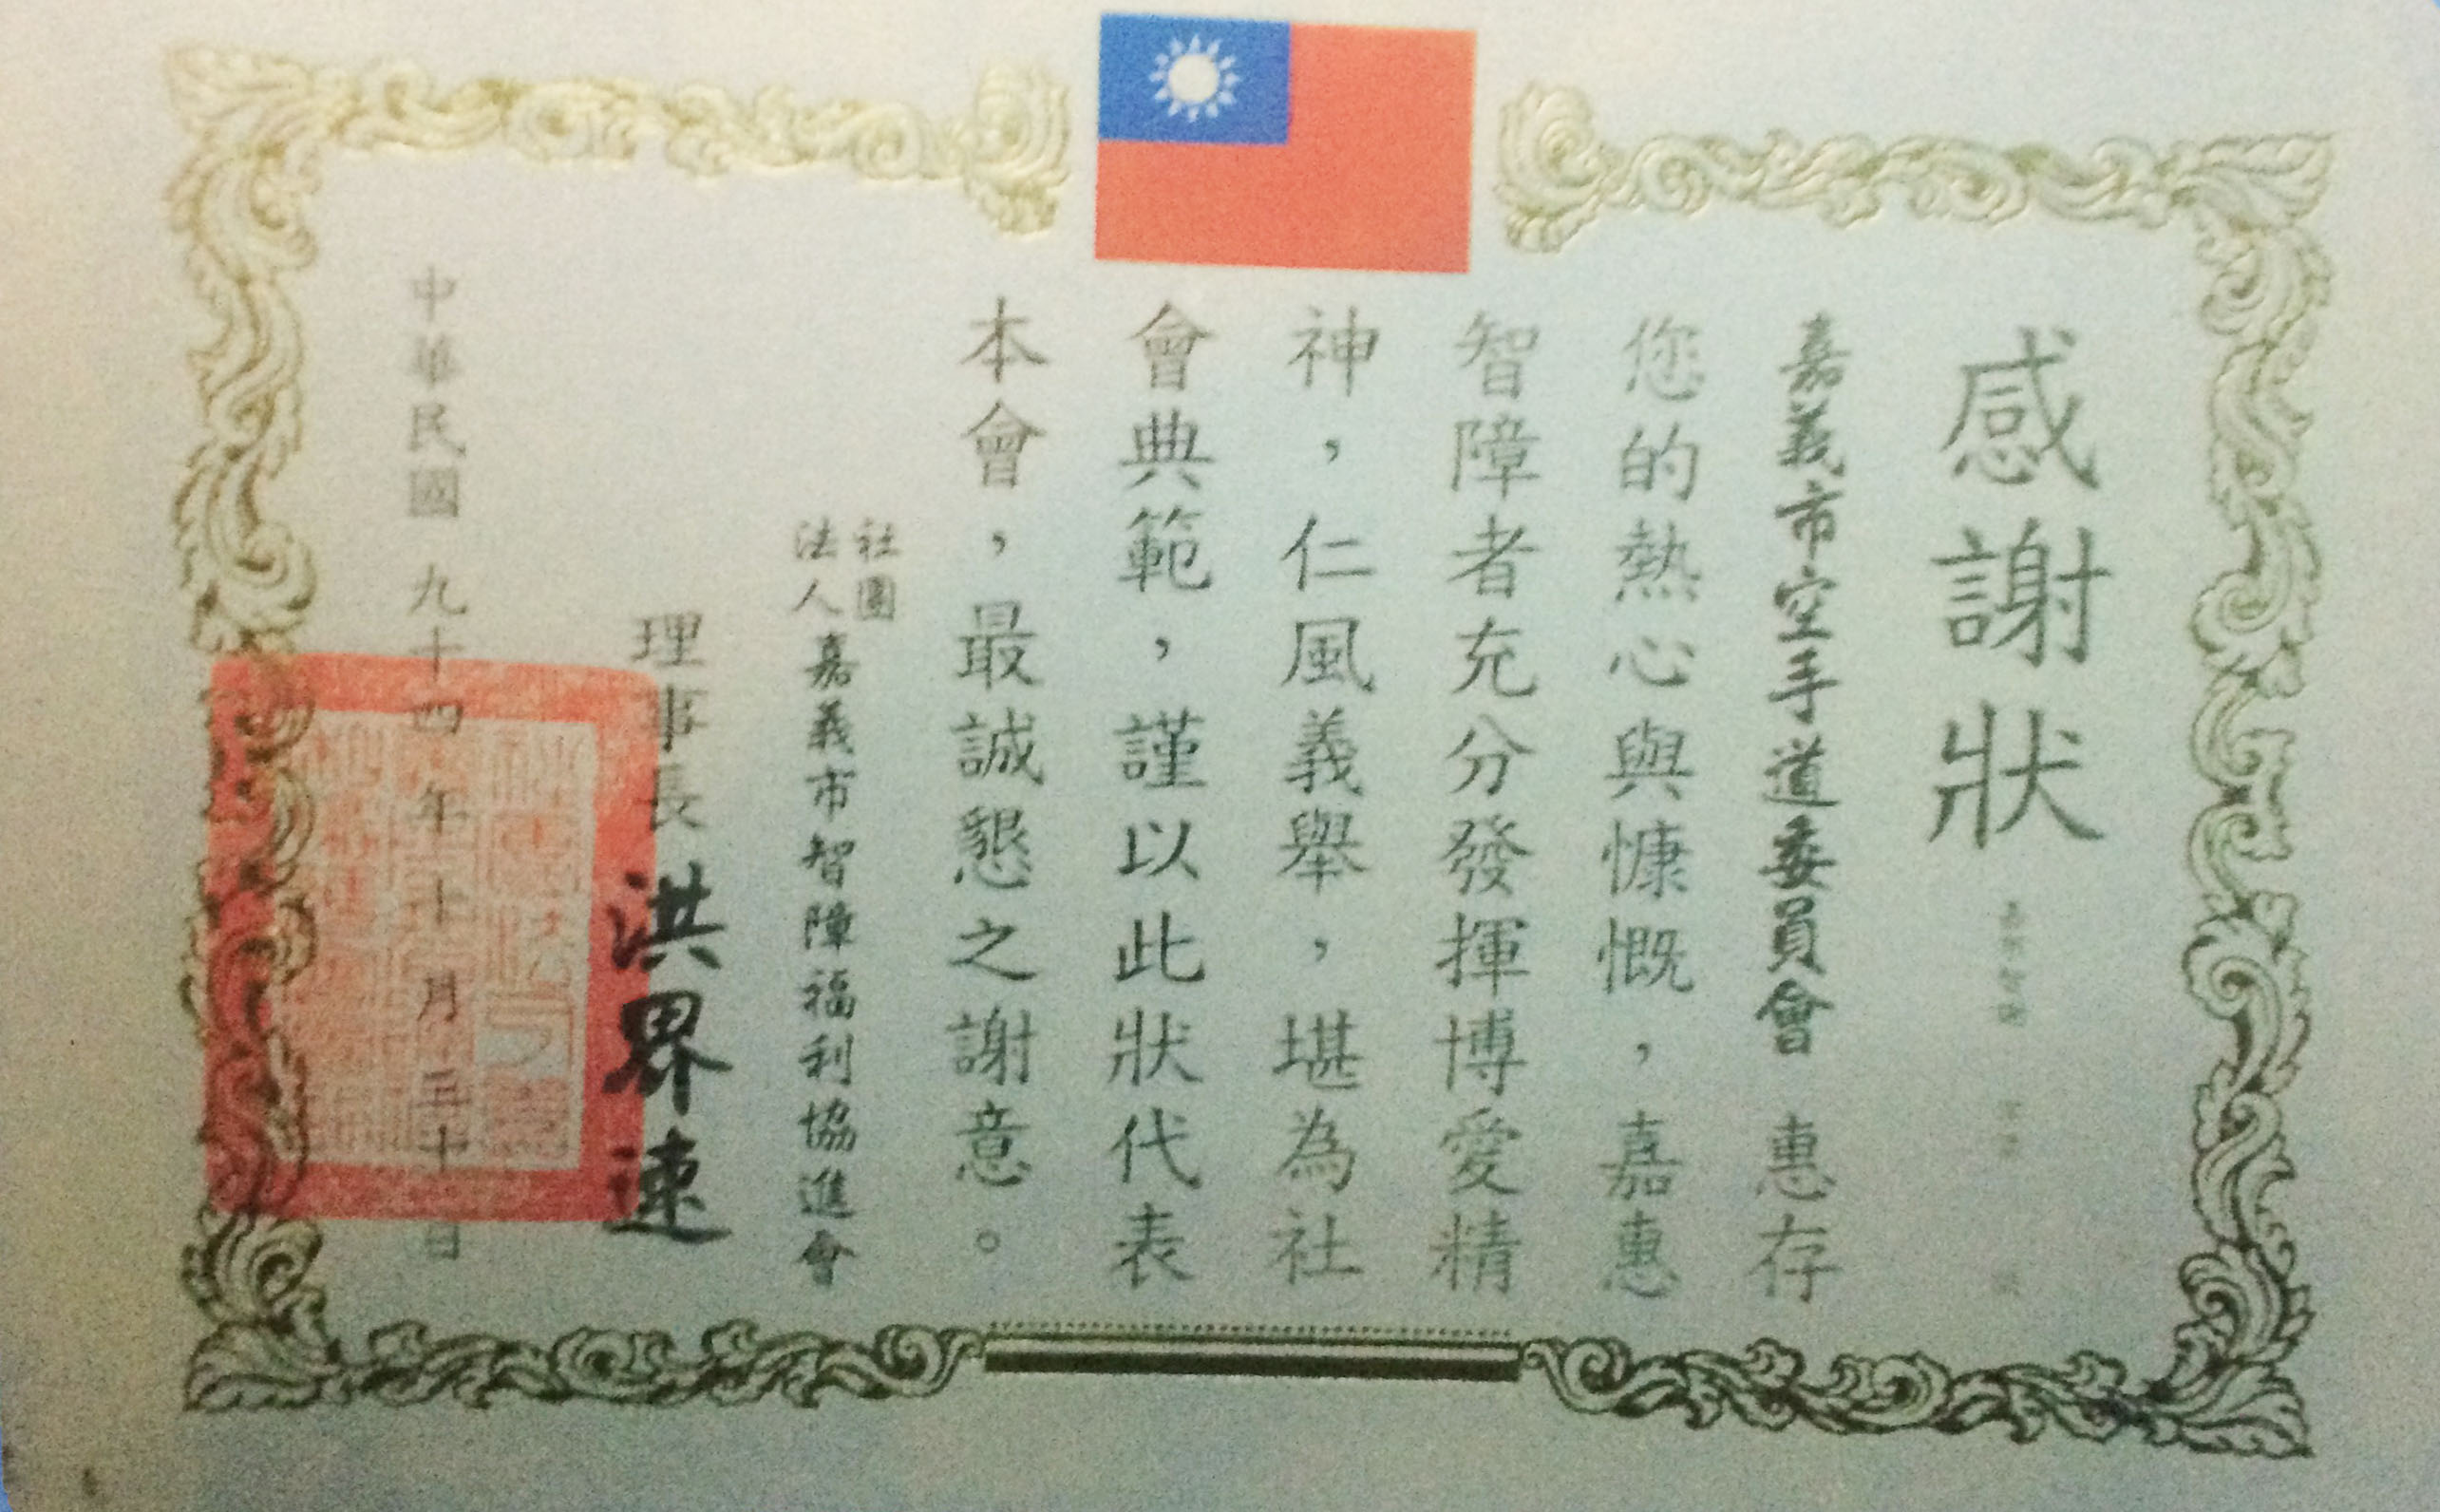 感謝狀
嘉義市空手道委員會 惠存
您的熱心與慷慨，嘉惠
智障者充分發揮博愛精
神，仁風義舉，堪為社
會典範，謹以此狀代表
本會，最誠懇之謝意。
社團
法人嘉義市智障福利協進會
理事長 洪界速
中華民國九十四年十月三十日